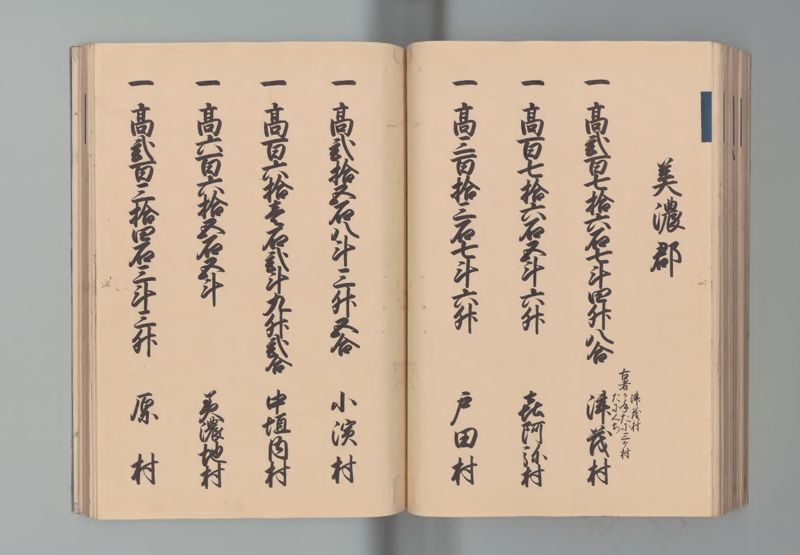 美濃郡
一 高弐百七拾六石七斗四升八合 津茂村
古者
津茂村
一 高百七拾六石五斗六升 喜阿弥村
一 高三百拾三石七斗六升 戸田村
一 高弐拾五石八斗三升五合 小濱村
一 高百六拾壱石弐斗九升弐合 中垣内村
一 高六百六拾五石五斗 美濃地村
一 高弐百三拾四石三斗三升 原村